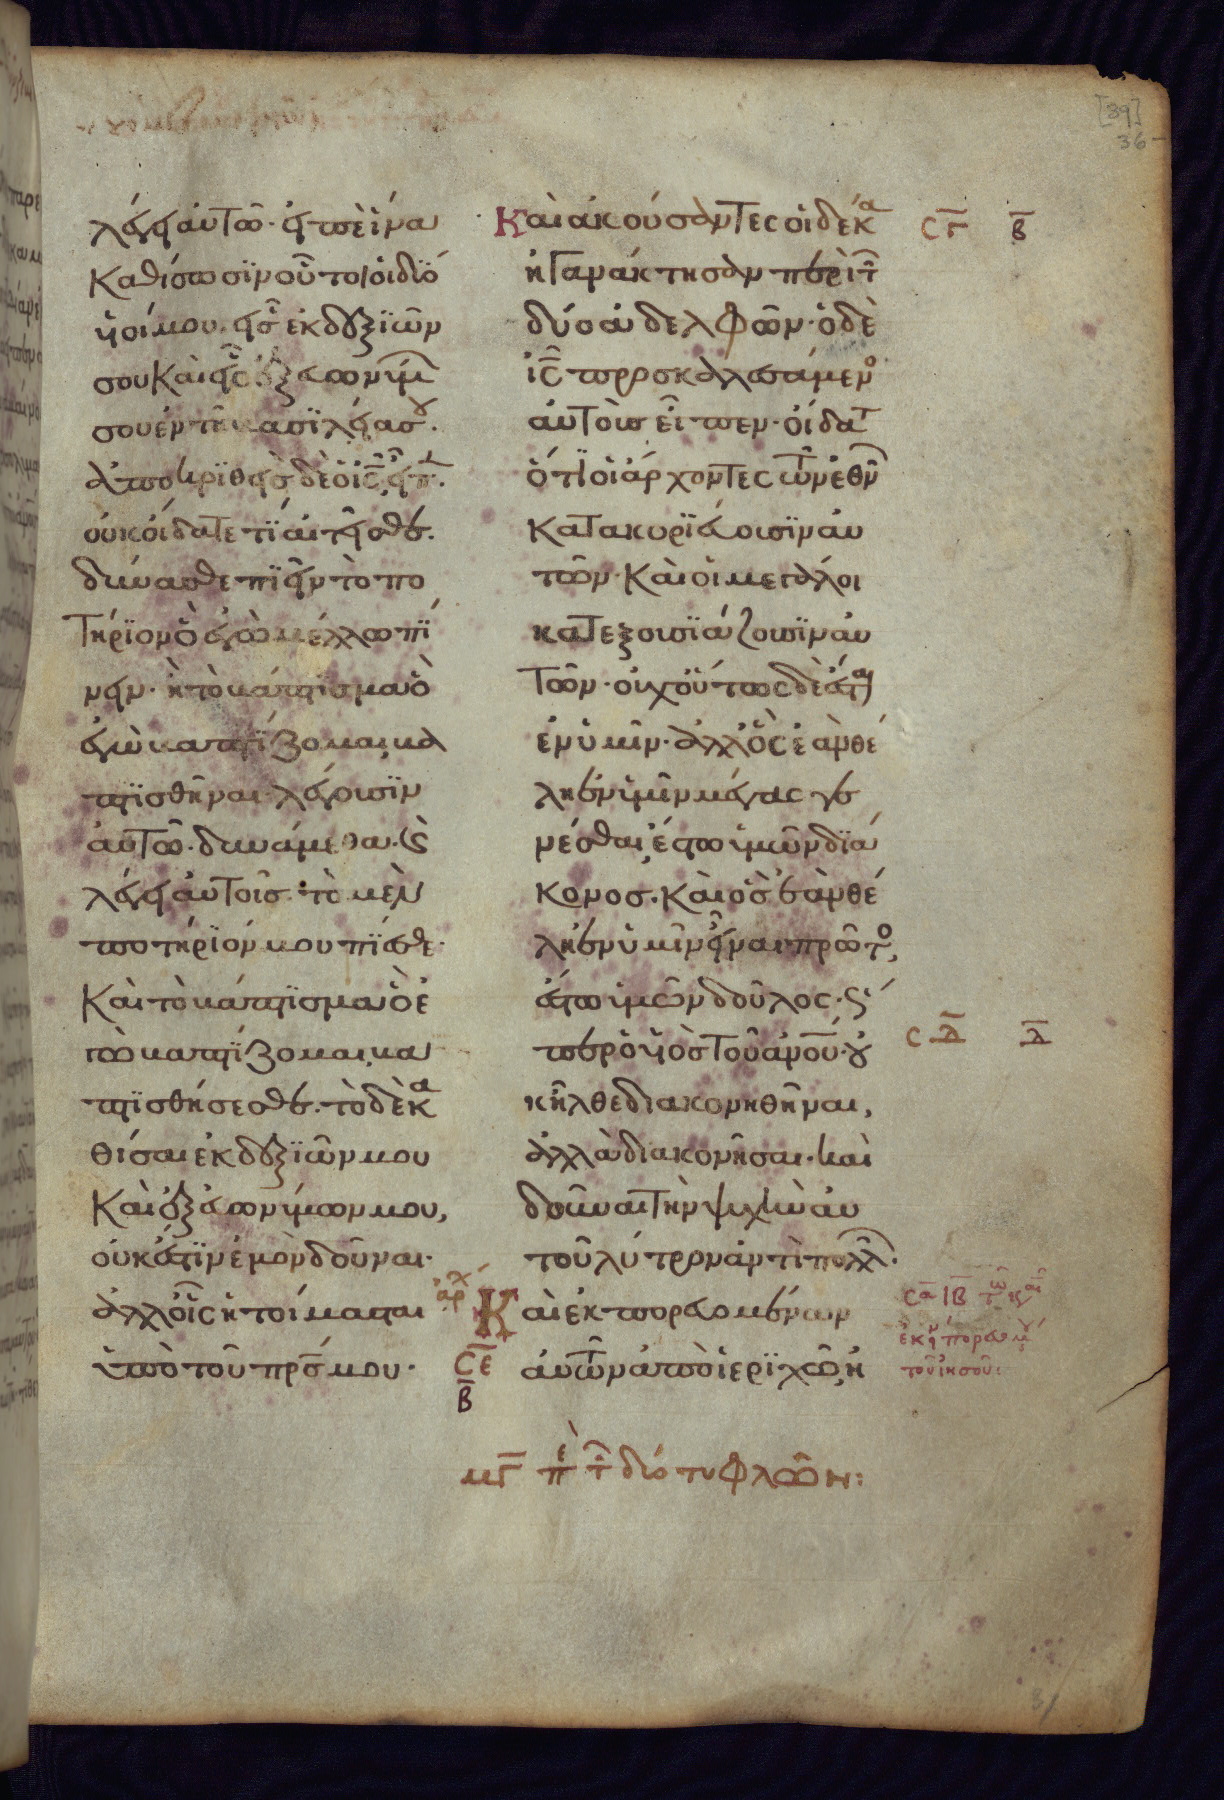 [39]
36
λέγει αὐτῶ· εἰπὲ ἵνα
καθίσωσϊν οὗτοι οἱ δύο
υἱοί μου. εἷς ἐκ δεξϊῶν
σου καὶ εἷς ἐξ εὐωνύμ
σου ἐν τῆ βασϊλείασου.
ἀποκρϊθεὶς δὲ ὁ ις̅ εἶπ.
οὐκ οἴδατε τί αἰτεῖσθε.
δύνασθε πϊεῖν τὸ πο
τήρϊον ὃ ἐγὼ μέλλω πϊ
νειν· ἢ τὸ βάπτϊσμα ὃ
ἐγὼ βαπτϊζομαι, βα
πτϊσθῆναι· λέγουσϊν
αὐτῶ· δυνάμεθα· καὶ
λέγει αὐτοῖς· τὸ μὲν
ποτήρϊόν μου πίεσθε·
καὶ τὸ βάπτϊσμα ὃ ἐ
γὼ βαπτϊζομαι, βα
πτϊσθήσεσθε. τὸ δὲ κα
θίσαι ἐκ δεξϊῶν μου
καὶ ἐξ εὐωνύμων μου,
οὐκ ἔστϊν ἐμὸν δοῦναι·
ἀλλ οἷς ἡτοίμασται
ὑπὸ τοῦ πρς̅ μου·
Καὶ ἀκούσαντες οἱ δέκα
ἠγανάκτησαν περὶ τ
δύο ἀδελφῶν· ὁ δὲ
ις̅ προσκαλεσάμενο
αὐτοὺς εἶπεν· οἴδατ
ὅτϊ οἱ ἄρχοντες τῶν ἐθν
κατακυρϊεύουσϊν αὐ
τῶν· καὶ οἱ μεγάλοι
κατεξουσϊάζουσϊν αὐ
τῶν· οὐχ οὕτως δὲ ἔσται
ἐν ὑμῖν· ἀλλ ὃς ἐὰν θέ
λη ἐν ὑμῖν μέγας γε
νέσθαι, ἔστω ὑμῶν δϊά
κονος· καὶ ὃς ἐὰν θέ
λη ἐν ὑμῖν εἶναι πρῶτο,
ἔστω ὑμῶν δοῦλος· ὥσ
περ ὁ υἱὸς τοῦ ἀνου· οὐ
κ ἦλθε διακονηθῆναι,
ἀλλὰ διακονῆσαι· καὶ
δοῦναι τὴν ψυχὴν αὐ
τοῦ λύτρον ἀντὶ πολλ.
Καὶ ἐκπορευομένων
αὐτῶν ἀπὸ ἱερϊχῶ, ἠ
ϲγ̅ β̅
ϲδ̅ δ̅
ἀρχ
ϲε̅
β̅
ϲα̅ ιβ̅ τῶ κ αι
ἐκπορευομ
τοῦ ἰησοῦ:
μγ̅ πε τ δύο τυφλῶν: